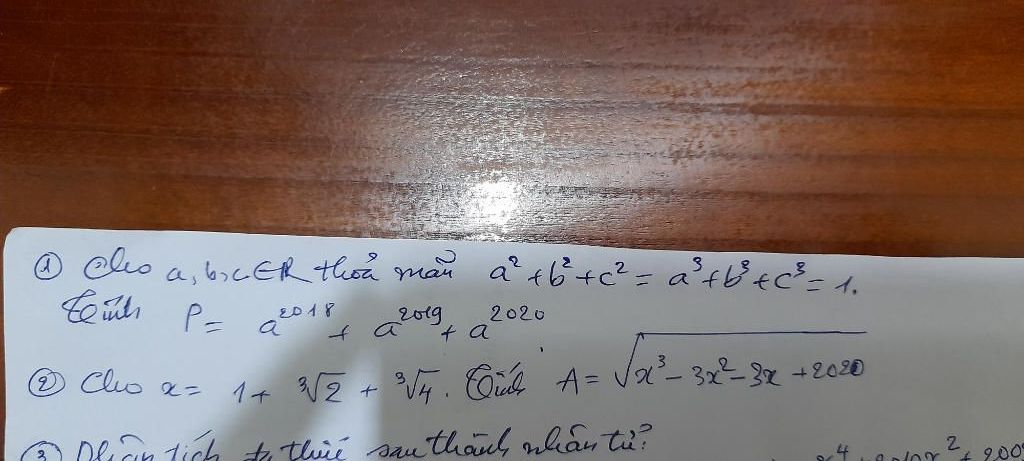 ① Cho a, b, c ∈ R thoả mãn a² + b² + c² = a³ + b³ + c³ = 1.
Tính P = a²⁰¹⁸ + a²⁰¹⁹ + a²⁰²⁰.
② Cho x = 1 + ∛2 + ∛4. Tính A = √(x³ - 3x² - 3x + 2020)
③ Phân tích đa thức sau thành nhân tử?